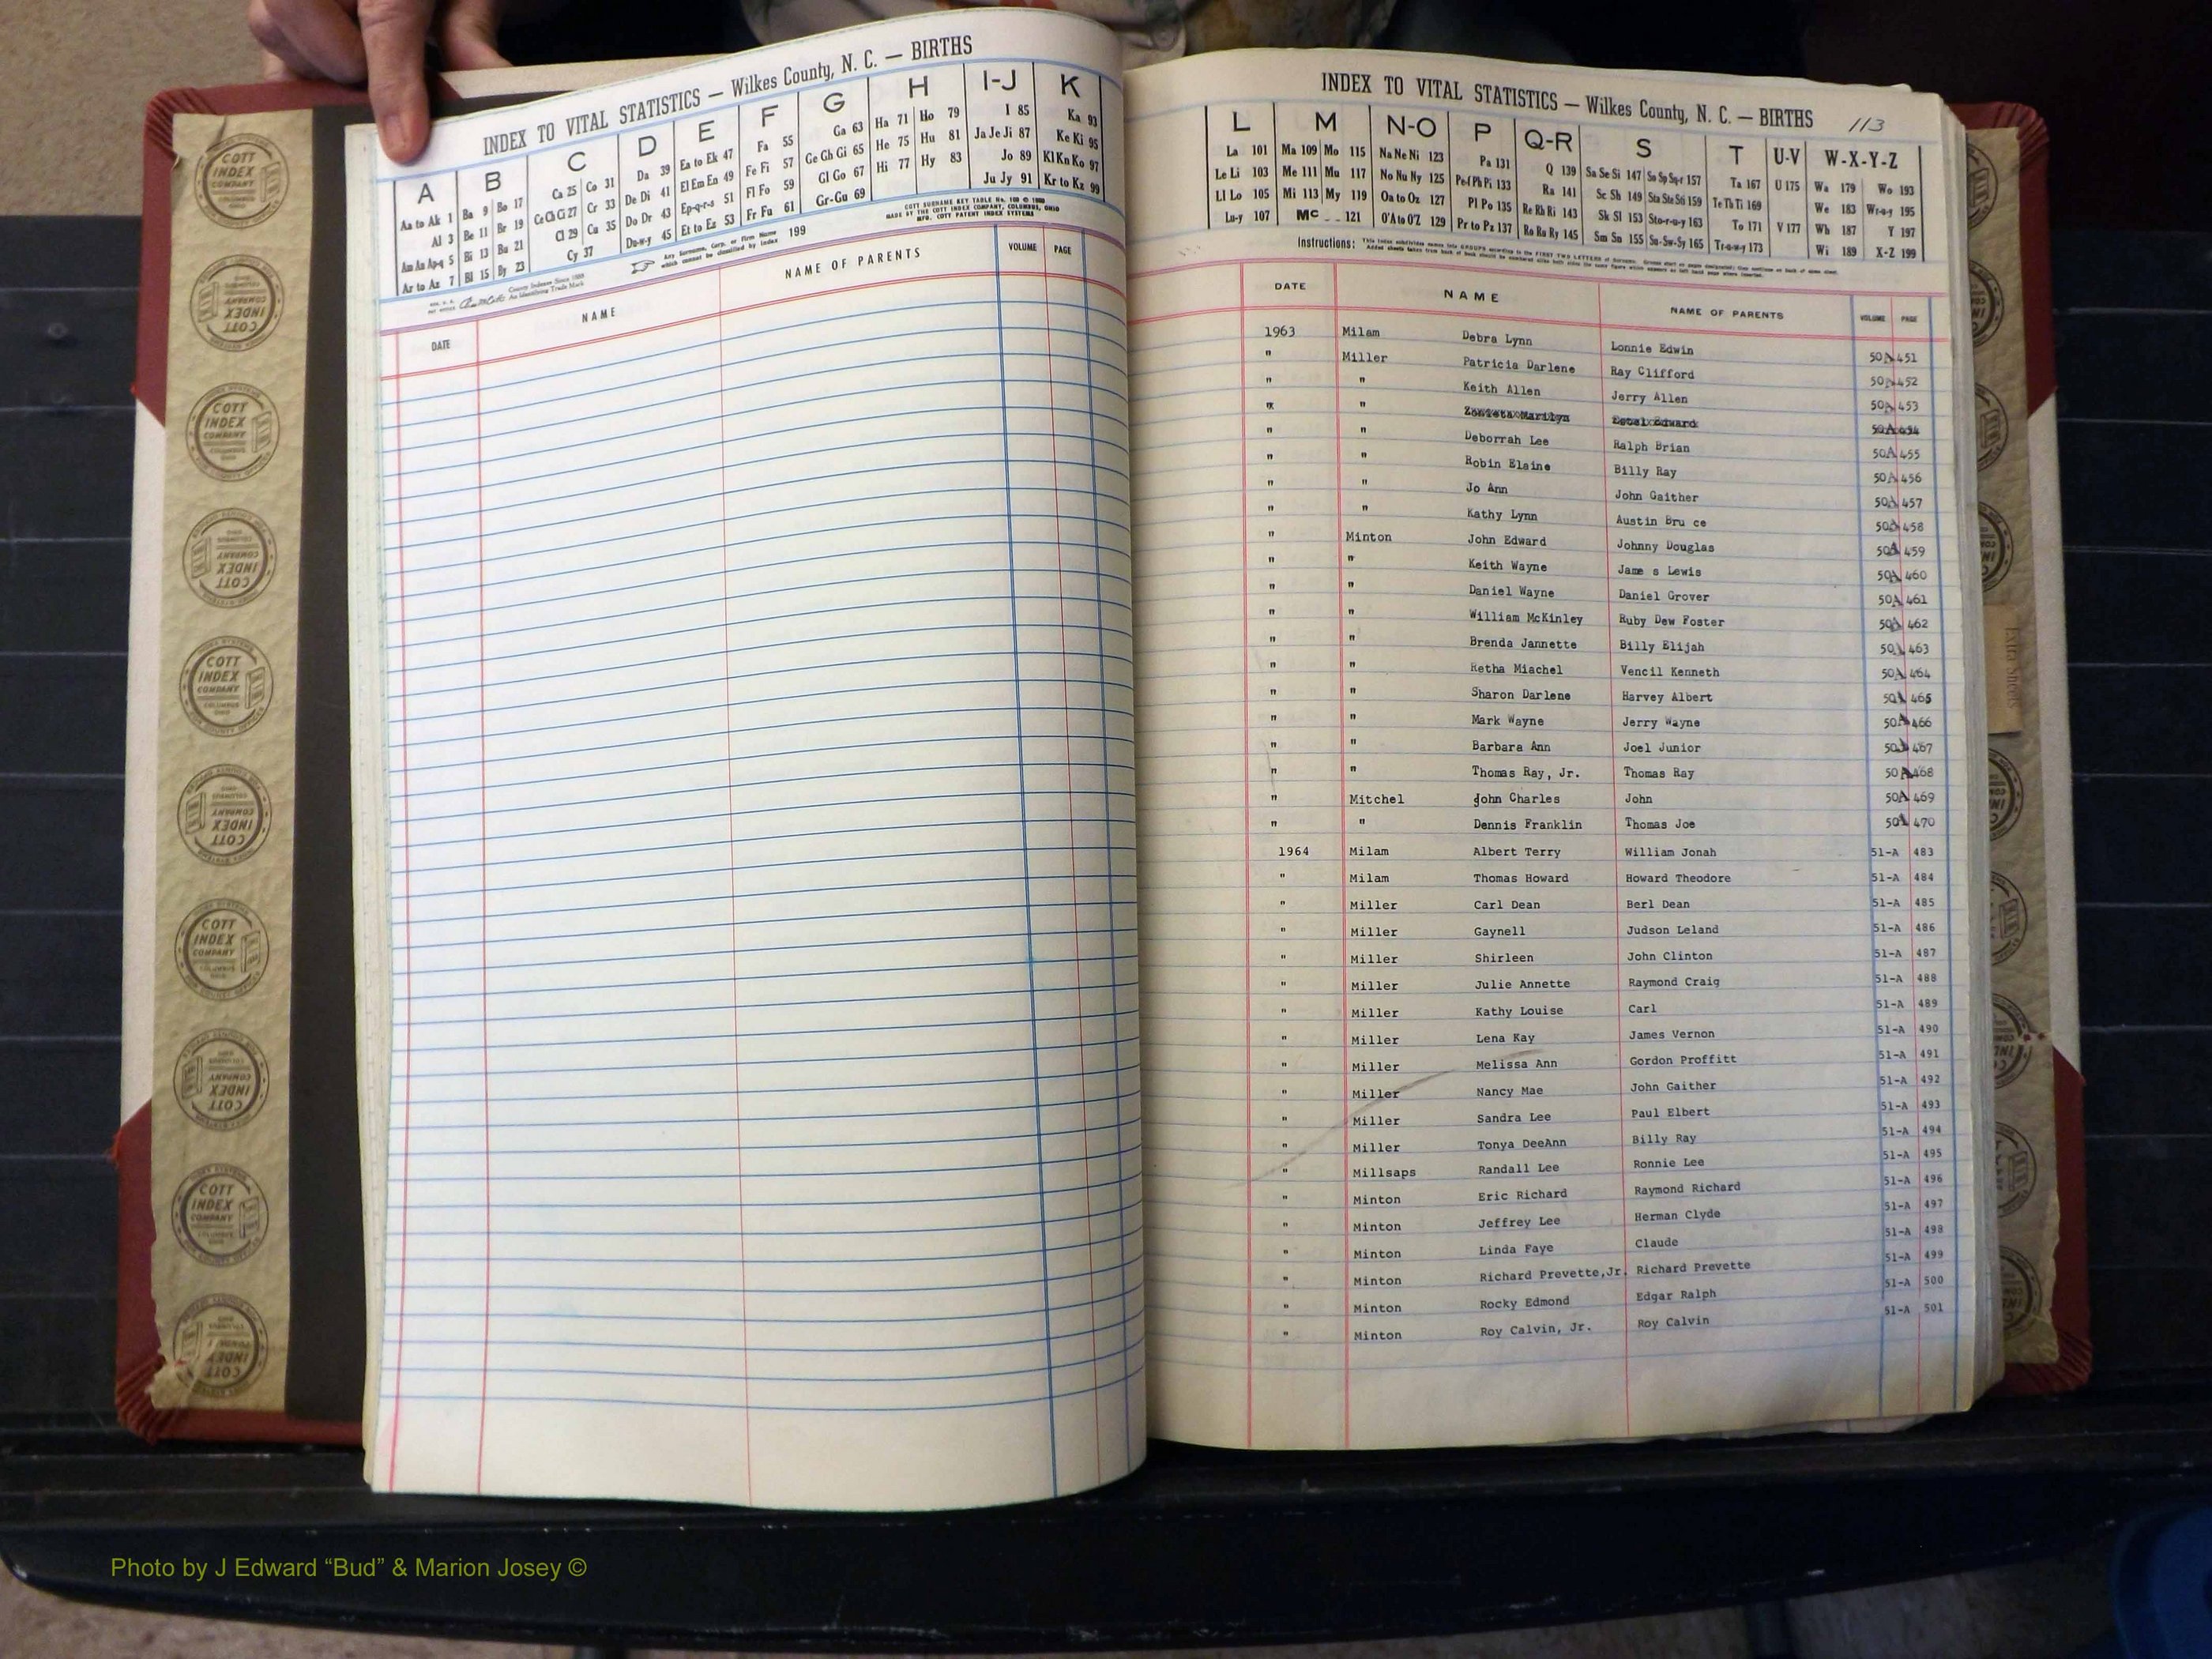 INDEX TO VITAL STATISTICS — Wilkes County, N. C. — BIRTHS
A B C D E F G H I-J K
Aa to Ak 1 Ba 9 Bo 17 Ca 25 Co 31 Da 39 Ea to Ek 47 Fa 55 Ga 63 Ha 71 Ho 79 I 85 Ka 93
Al 3 Be 11 Br 19 Ce Ch Ci 27 Cr 33 De Di 41 El Em En 49 Fe Fi 57 Ge Gh Gi 65 He 75 Hu 81 Ja Je Ji 87 Ke Ki 95
Am An Ap-q 5 Bi 13 Bu 21 Cl 29 Cu 35 Do Dr 43 Ep-q-r-s 51 Fl Fo 59 Gl Go 67 Hi 77 Hy 83 Jo 89 Kl Kn Ko 97
Ar to Az 7 Bl 15 By 23 Cy 37 Du-w-y 45 Et to Ez 53 Fr Fu 61 Gr-Gu 69 Ju Jy 91 Kr to Kz 99
COTT SURNAME KEY TABLE No. 100
MADE BY THE COTT INDEX COMPANY, COLUMBUS, OHIO
MFG. COTT PATENT INDEX SYSTEMS
Any Surname, Corp. or Firm Name which cannot be classified by index 199
County Indexes Since 1888
An Identifying Trade Mark
DATE NAME NAME OF PARENTS VOLUME PAGE
INDEX TO VITAL STATISTICS — Wilkes County, N. C. — BIRTHS 113
L M N-O P Q-R S T U-V W-X-Y-Z
La 101 Ma 109 Mo 115 Na Ne Ni 123 Pa 131 Q 139 Sa Se Si 147 So Sp Sq-r 157 Ta 167 U 175 Wa 179 Wo 193
Le Li 103 Me 111 Mu 117 No Nu Ny 125 Pe-f Ph Pi 133 Ra 141 Sc Sh 149 Sta Ste Sti 159 Te Th Ti 169 We 183 Wr-u-y 195
Ll Lo 105 Mi 113 My 119 Oa to Oz 127 Pl Po 135 Re Rh Ri 143 Sk Sl 153 Sto-r-u-y 163 To 171 V 177 Wh 187 Y 197
Lu-y 107 Mc 121 O'A to O'Z 129 Pr to Pz 137 Ro Ru Ry 145 Sm Sn 155 Su-Sw-Sy 165 Tr-u-w-y 173 Wi 189 X-Z 199
Instructions: This index subdivides names into GROUPS according to the FIRST TWO LETTERS of Surname.
DATE NAME NAME OF PARENTS VOLUME PAGE
1963 Milam Debra Lynn Lonnie Edwin 50A 451
" Miller Patricia Darlene Ray Clifford 50A 452
" " Keith Allen Jerry Allen 50A 453
" " Marilyn Edward 50A 454
" " Deborrah Lee Ralph Brian 50A 455
" " Robin Elaine Billy Ray 50A 456
" " Jo Ann John Gaither 50A 457
" " Kathy Lynn Austin Bru ce 50A 458
" Minton John Edward Johnny Douglas 50A 459
" " Keith Wayne Jame s Lewis 50A 460
" " Daniel Wayne Daniel Grover 50A 461
" " William McKinley Ruby Dew Foster 50A 462
" " Brenda Jannette Billy Elijah 50A 463
" " Retha Miachel Vencil Kenneth 50A 464
" " Sharon Darlene Harvey Albert 50A 465
" " Mark Wayne Jerry Wayne 50A 466
" " Barbara Ann Joel Junior 50A 467
" " Thomas Ray, Jr. Thomas Ray 50A 468
" Mitchel John Charles John 50A 469
" " Dennis Franklin Thomas Joe 50A 470
1964 Milam Albert Terry William Jonah 51-A 483
" Milam Thomas Howard Howard Theodore 51-A 484
" Miller Carl Dean Berl Dean 51-A 485
" Miller Gaynell Judson Leland 51-A 486
" Miller Shirleen John Clinton 51-A 487
" Miller Julie Annette Raymond Craig 51-A 488
" Miller Kathy Louise Carl 51-A 489
" Miller Lena Kay James Vernon 51-A 490
" Miller Melissa Ann Gordon Proffitt 51-A 491
" Miller Nancy Mae John Gaither 51-A 492
" Miller Sandra Lee Paul Elbert 51-A 493
" Miller Tonya DeeAnn Billy Ray 51-A 494
" Millsaps Randall Lee Ronnie Lee 51-A 495
" Minton Eric Richard Raymond Richard 51-A 496
" Minton Jeffrey Lee Herman Clyde 51-A 497
" Minton Linda Faye Claude 51-A 498
" Minton Richard Prevette,Jr. Richard Prevette 51-A 499
" Minton Rocky Edmond Edgar Ralph 51-A 500
" Minton Roy Calvin, Jr. Roy Calvin 51-A 501
COTT INDEX COMPANY COLUMBUS OHIO
Extra Sheets
Photo by J Edward “Bud” & Marion Josey ©